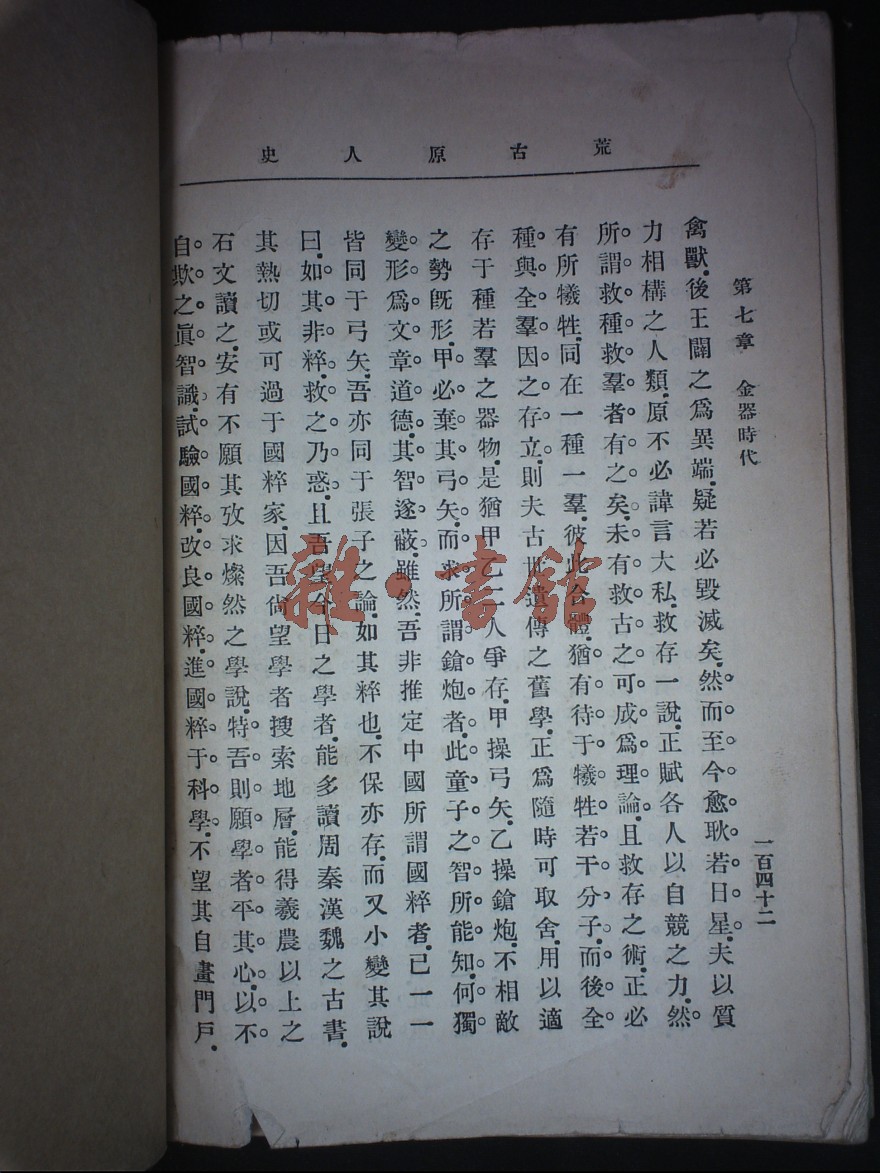 荒古原人史
第七章 金器時代
一百四十二
禽獸.後王闢之爲異端.疑若必毀滅矣.然而至今愈耿若日星.夫以質
力相構之人類.原不必諱言大私.救存一說.正賦各人以自競之力.然
所謂救種救羣者有之矣.未有救古之可成爲理論.且救存之術.正必
有所犧牲.同在一種一羣.彼此合體.猶有待于犧牲若干分子.而後全
種與全羣因之存立.則夫古世遺傳之舊學.正爲隨時可取舍.用以適
存于種若羣之器物.是猶甲乙二人爭存.甲操弓矢.乙操鎗炮.不相敵
之勢旣形.甲必棄其弓矢.而求所謂鎗炮者.此童子之智所能知.何獨
變形爲文章道德.其智遂蔽.雖然.吾非推定中國所謂國粹者.已一一
皆同于弓矢.吾亦同于張子之論.如其粹也.不保亦存.而又小變其說
曰.如其非粹.救之乃惑.且吾望今日之學者.能多讀周秦漢魏之古書.
其熱切或可過于國粹家.因吾尙望學者搜索地層.能得羲農以上之
石文讀之.安有不願其攷求燦然之學說.特吾則願學者平其心.以不
自欺之眞智識.試驗國粹.改良國粹.進國粹于科學.不望其自畫門戶.
雜·書館